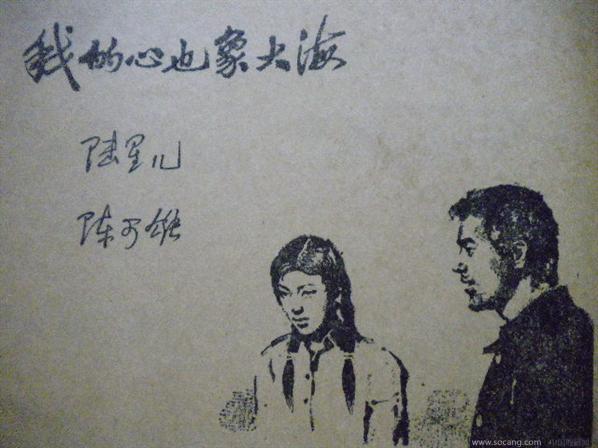 我的心也象大海
陆星儿
陈可雄
www.socang.com